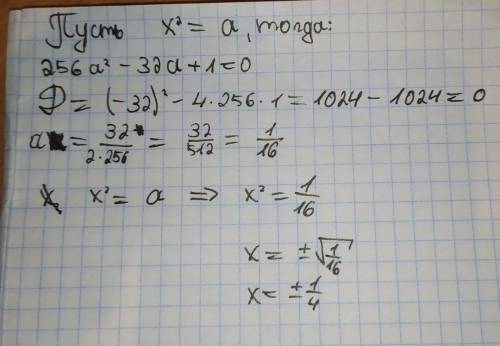 Пусть x² = a, тогда:
256a² - 32a + 1 = 0
D = (-32)² - 4·256·1 = 1024 - 1024 = 0
a = 32/2·256 = 32/512 = 1/16
x² = a ⇒ x² = 1/16
x = ±√1/16
x = ±1/4